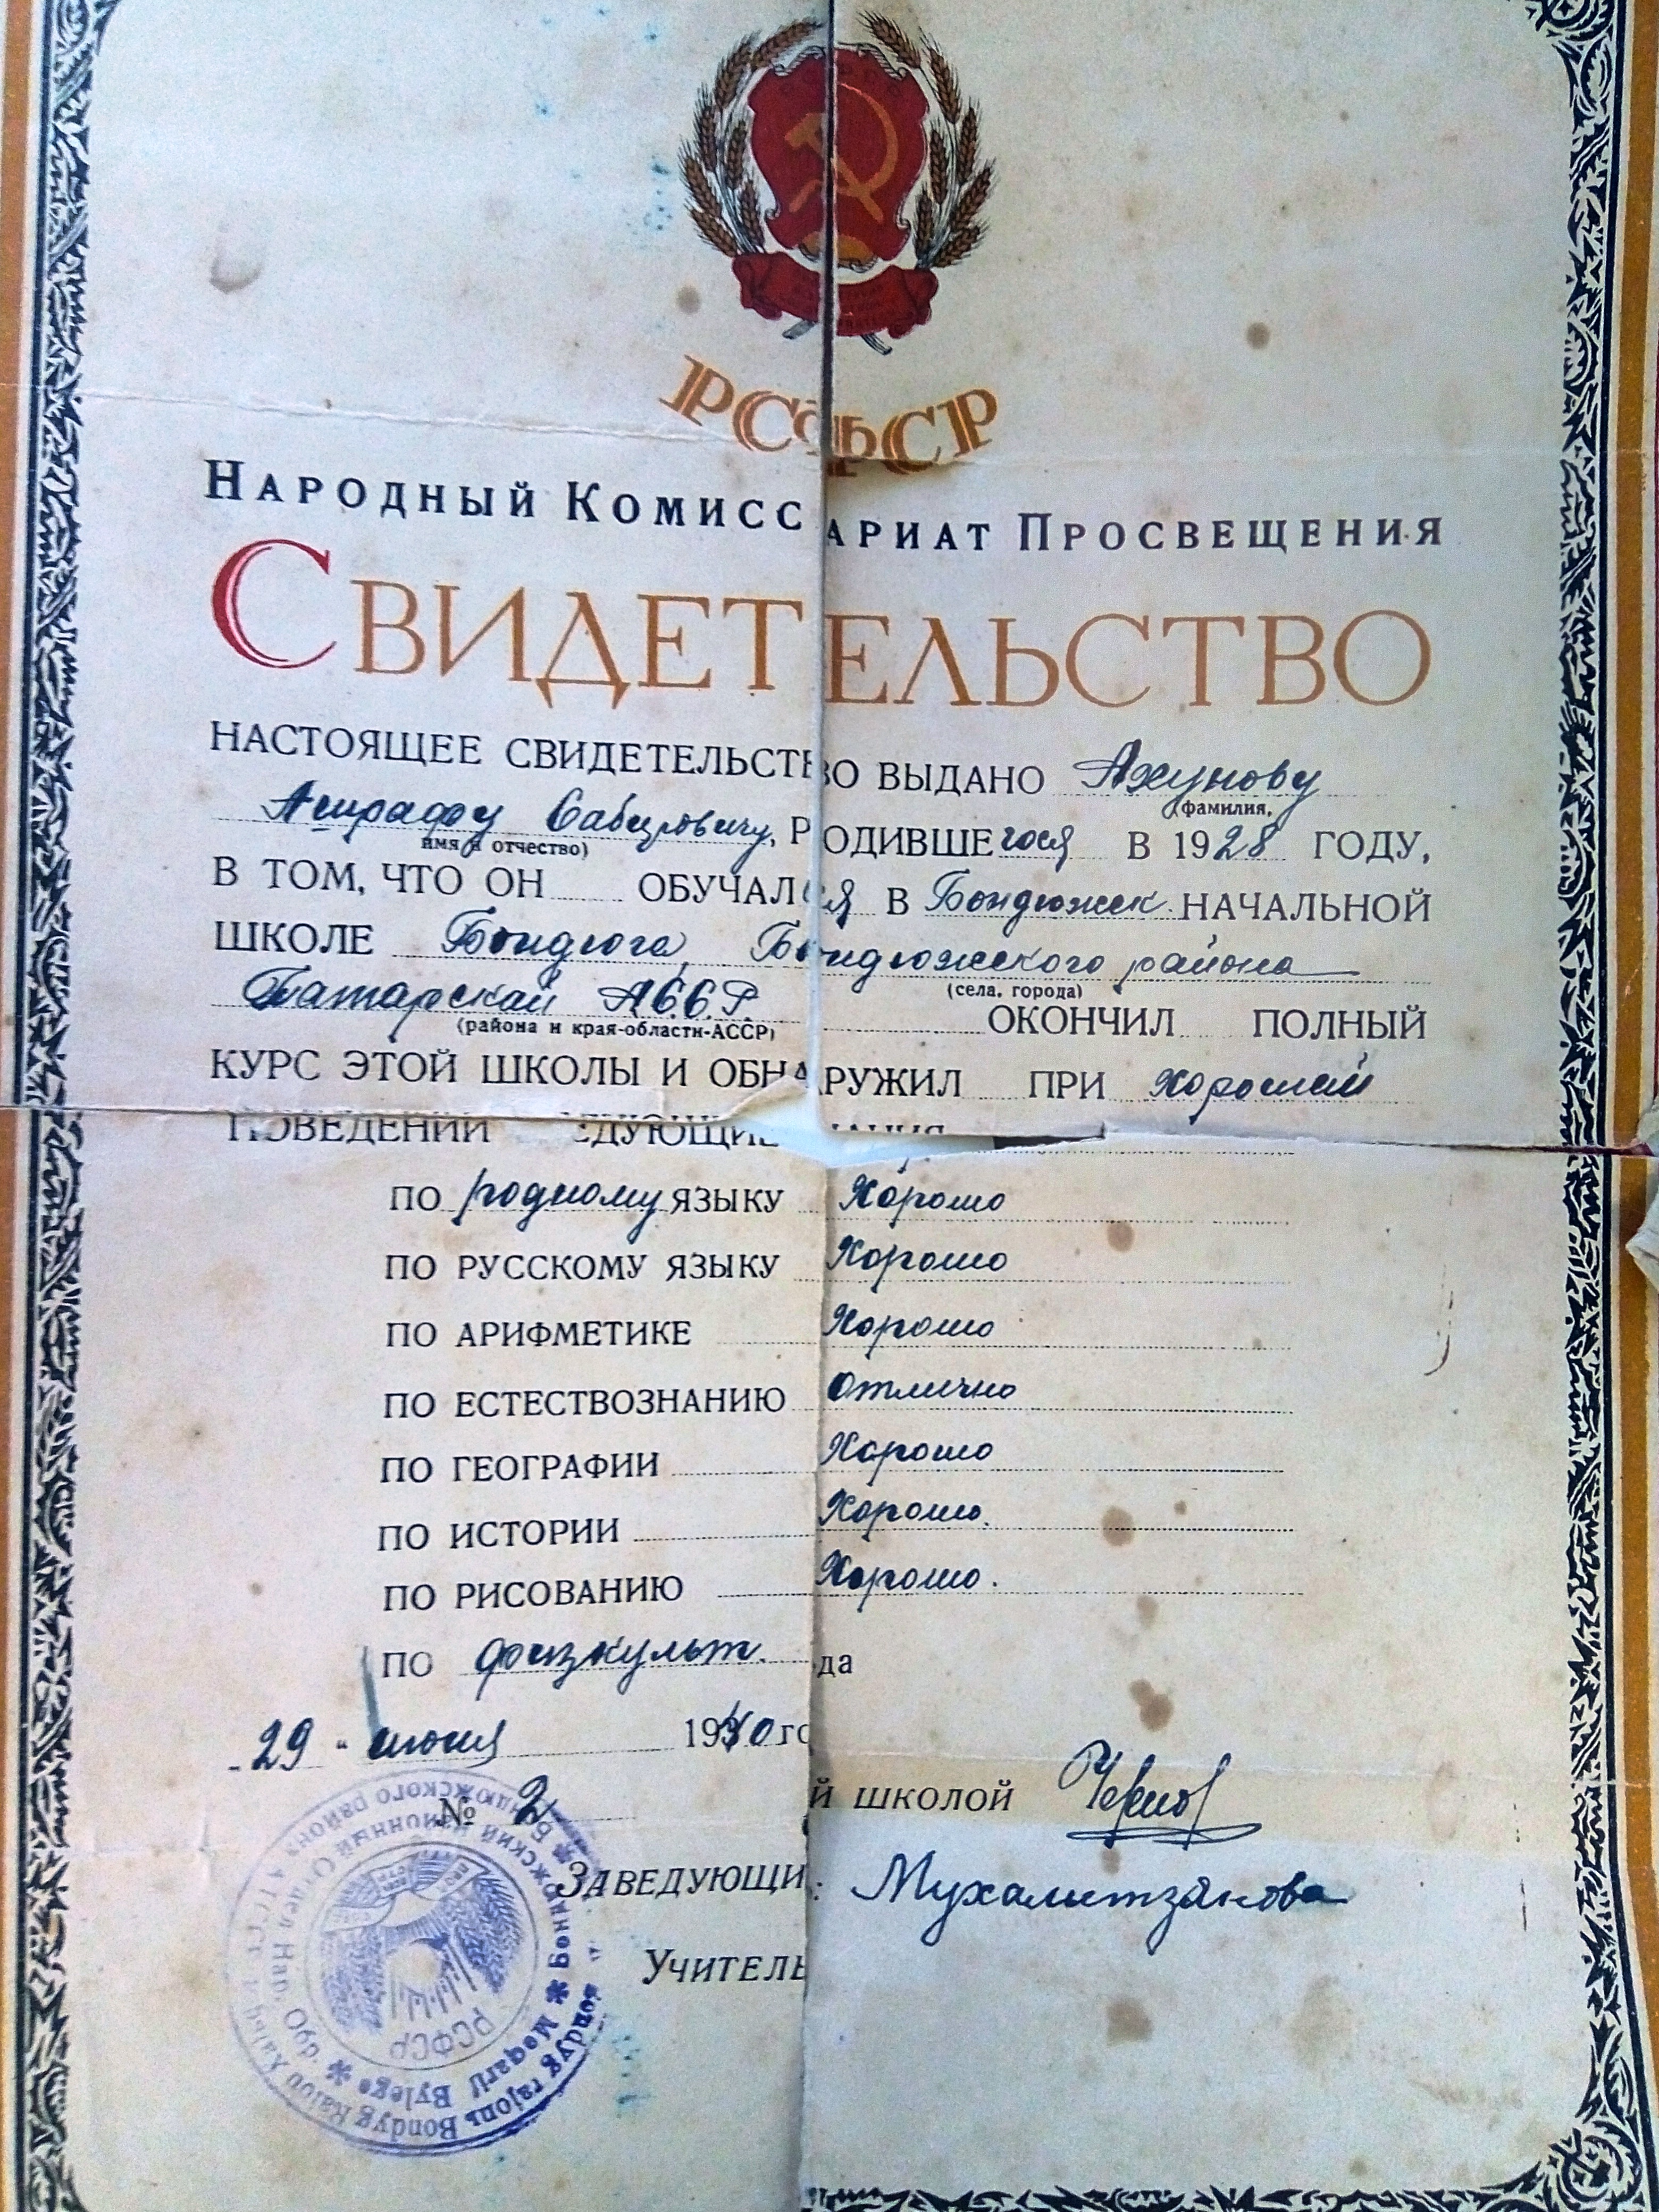 РСФСР
НАРОДНЫЙ КОМИССАРИАТ ПРОСВЕЩЕНИЯ
СВИДЕТЕЛЬСТВО
НАСТОЯЩЕЕ СВИДЕТЕЛЬСТВО ВЫДАНО Ахунову
(фамилия,
Ашрафу Сабировичу, РОДИВШЕгося В 1928 ГОДУ,
имя и отчество)
В ТОМ, ЧТО ОН ОБУЧАЛся В Бондюжск. НАЧАЛЬНОЙ
ШКОЛЕ Бондюга, Бондюжского района
(села, города)
Татарской АССР ОКОНЧИЛ ПОЛНЫЙ
(района и края-области-АССР)
КУРС ЭТОЙ ШКОЛЫ И ОБНАРУЖИЛ ПРИ хорошем
ПОВЕДЕНИИ ЕДУЮЩИЕ НАНИЯ
ПО родному ЯЗЫКУ Хорошо
ПО РУССКОМУ ЯЗЫКУ Хорошо
ПО АРИФМЕТИКЕ Хорошо
ПО ЕСТЕСТВОЗНАНИЮ Отлично
ПО ГЕОГРАФИИ Хорошо
ПО ИСТОРИИ Хорошо.
ПО РИСОВАНИЮ Хорошо.
ПО физкульт.
29 " июня 1940 года
№ 2
ЗАВЕДУЮЩИЙ ШКОЛОЙ
УЧИТЕЛЬ: Мухаметзянова
РСФСР